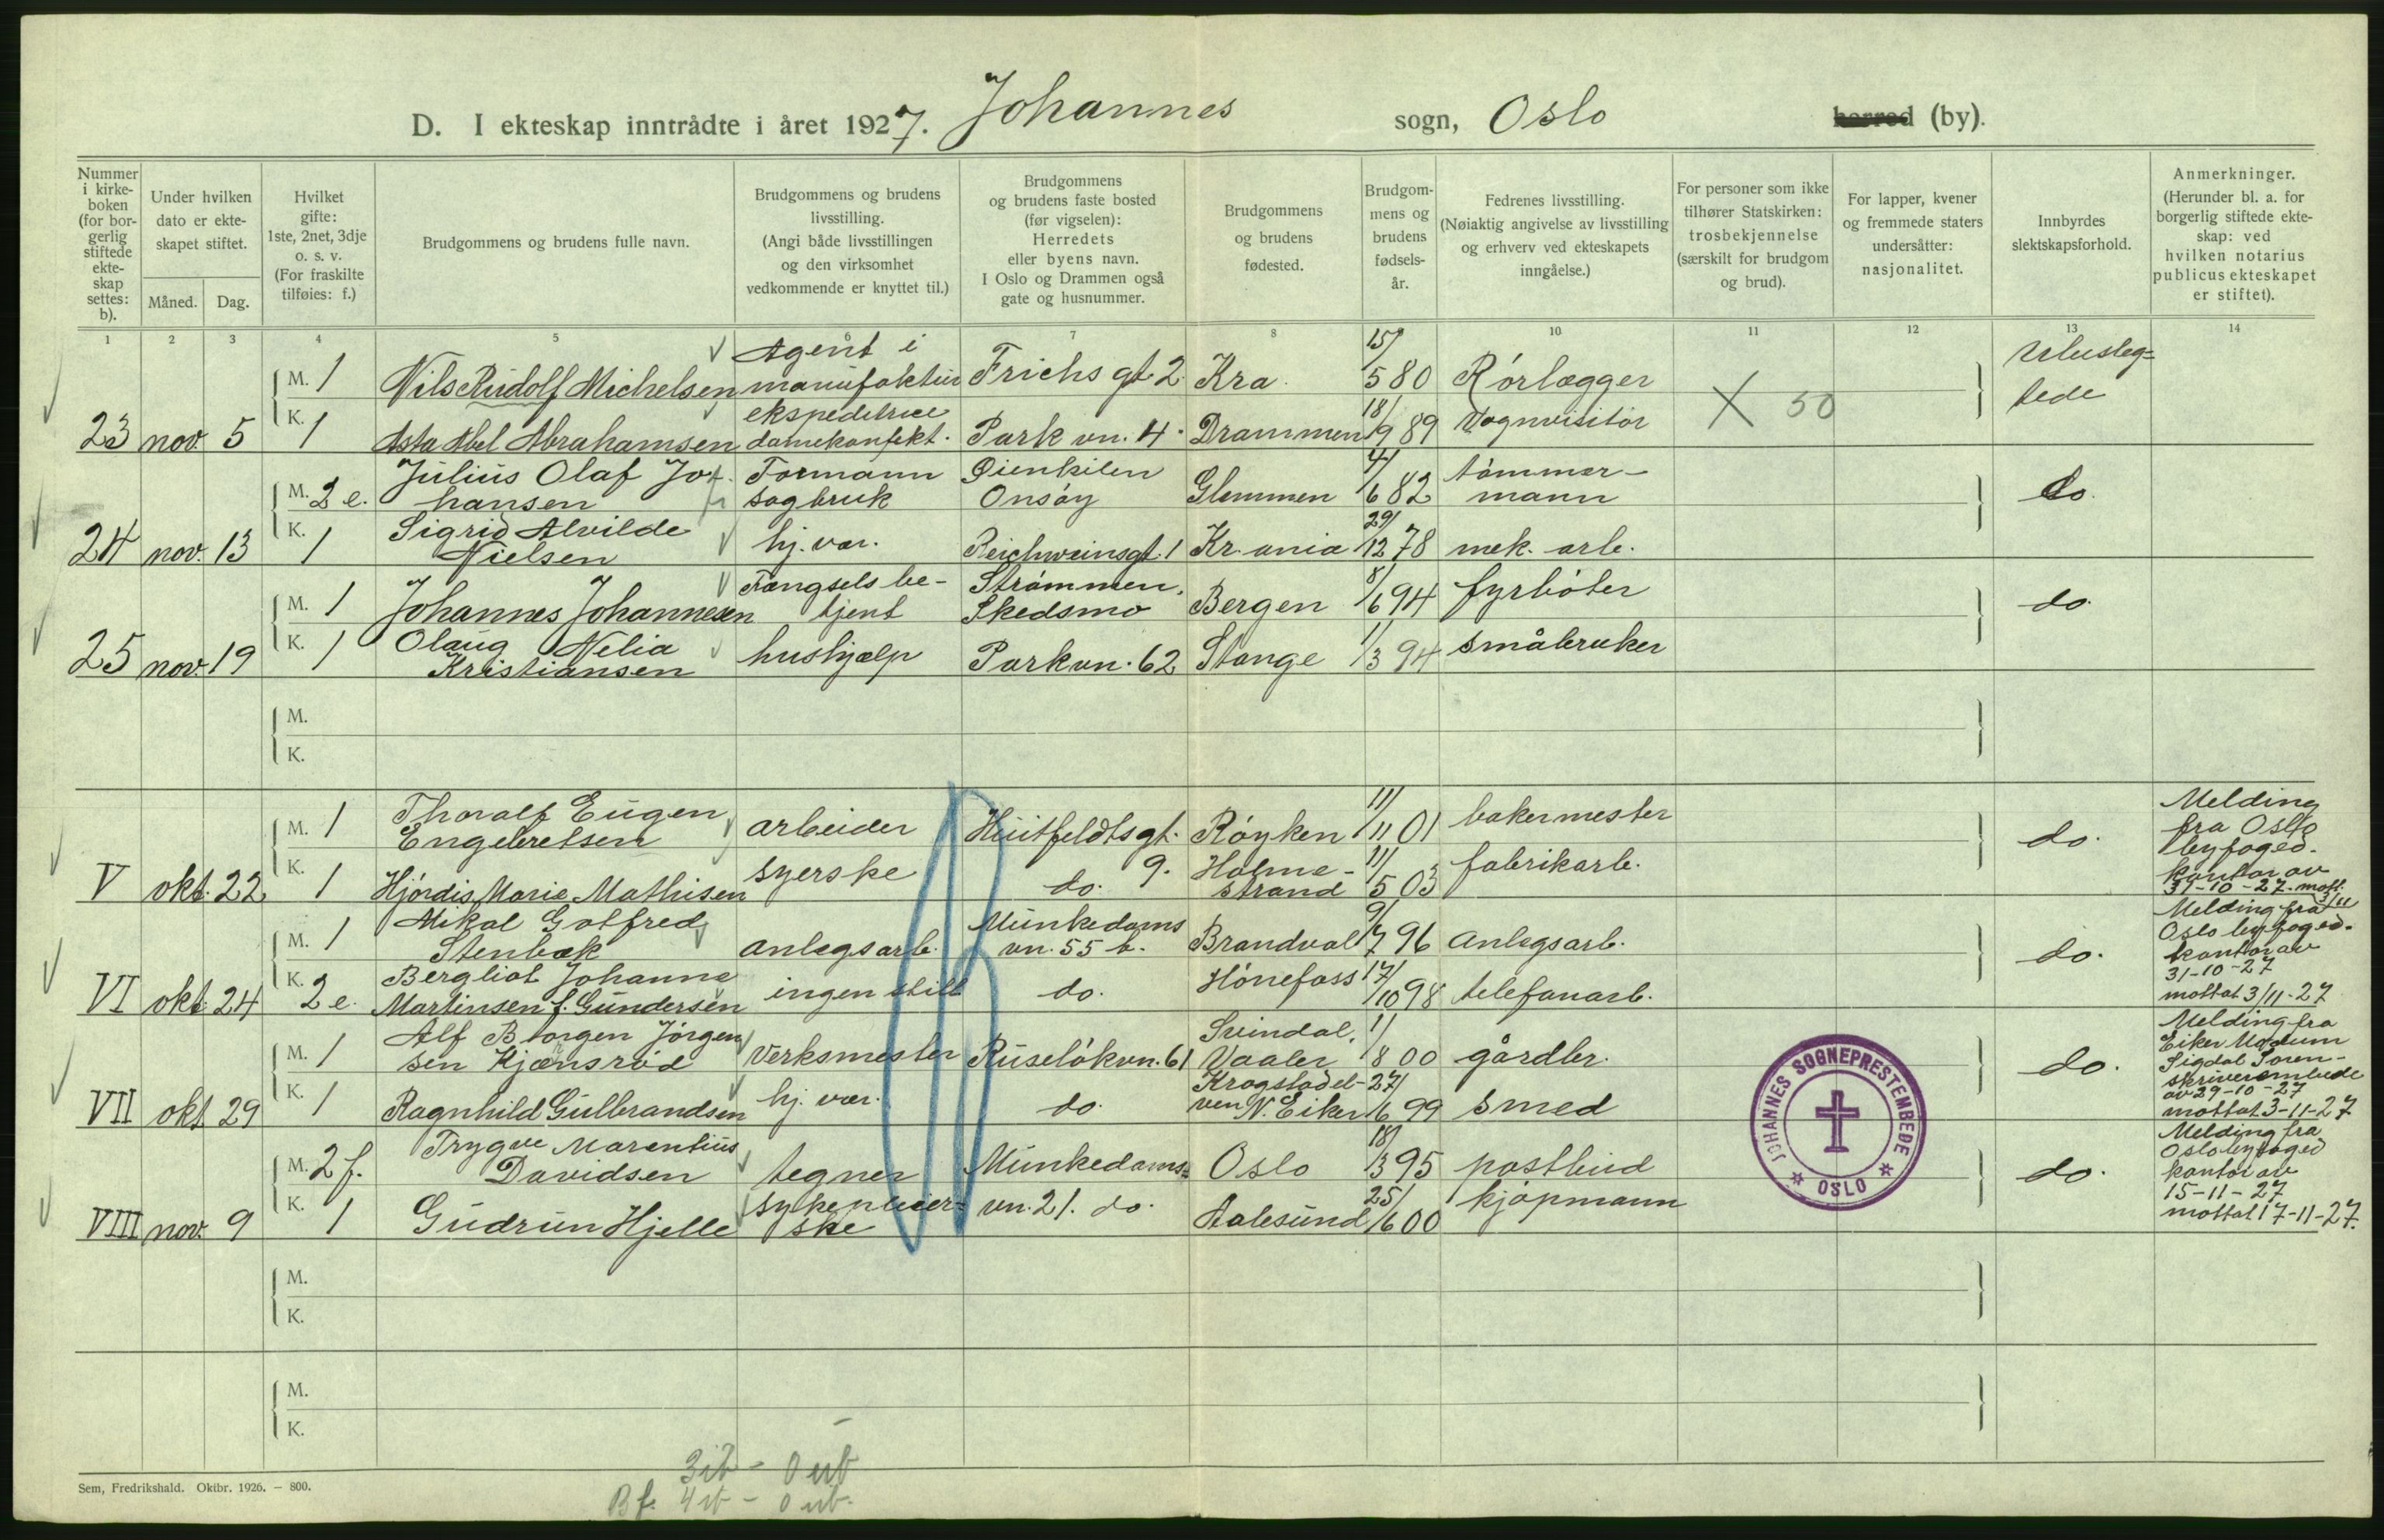 D. I ekteskap inntrådte i året 1927. Johannes sogn, Oslo herred (by).
Nummer i kirke- boken (for bor- gerlig stiftede ekte- skap settes: b).
Under hvilken dato er ekte- skapet stiftet.
Måned. Dag.
Hvilket gifte: 1ste, 2net, 3dje o. s. v. (For fraskilte tilføies: f.)
Brudgommens og brudens fulle navn.
Brudgommens og brudens livsstilling. (Angi både livsstillingen og den virksomhet vedkommende er knyttet til.)
Brudgommens og brudens faste bosted (før vigselen): Herredets eller byens navn. I Oslo og Drammen også gate og husnummer.
Brudgommens og brudens fødested.
Brudgom- mens og brudens fødsels- år.
Fedrenes livsstilling. (Nøiaktig angivelse av livsstilling og erhverv ved ekteskapets inngåelse.)
For personer som ikke tilhører Statskirken: trosbekjennelse (særskilt for brudgom og brud).
For lapper, kvener og fremmede staters undersåtter: nasjonalitet.
Innbyrdes slektskapsforhold.
Anmerkninger. (Herunder bl. a. for borgerlig stiftede ekte- skap: ved hvilken notarius publicus ekteskapet er stiftet).
1 2 3 4 5 6 7 8 9 10 11 12 13 14
M. 1 Nils Rudolf Michelsen Agent i manufaktur Frichs gt. 2 Kra. 15/5 80 Rørlægger Ubesleg= tede
23 nov. 5 K. 1 Asta Abel Abrahamsen ekspeditrice damekonfekt. Parkvn. 4. Drammen 18/9 89 Vognvisitør X 50
M. 2 e. Julius Olaf Jo- hansen Formann sagbruk Øienkilen Onsøy Glemmen 4/6 82 tømmer- mann do.
24 nov. 13 K. 1 Sigrid Alvilde Nielsen hj. vær. Reichweinsgt. 1 Kr.ania 29/12 78 mek. arb.
M. 1 Johannes Johannesen Fængsels be- tjent Strømmen, Skedsmo Bergen 8/6 94 fyrbøter do.
25 nov. 19 K. 1 Olaug Nelia Kristiansen hushjælp Parkvn. 62 Stange 1/3 94 småbruker
M.
K.
M. 1 Thoralf Eugen Engebretsen arbeider Huitfeldtsgt. 9. Røyken 11/11 01 bakermester do. Melding fra Oslo byfoged- kontor av 31-10-27. mott. 3/11
V okt. 22 K. 1 Hjørdis Marie Mathisen syerske do. Holme- strand 11/5 03 fabrikarb.
M. 1 Mikal Gotfred Stenbæk anlegsarb. Munkedams vn. 55 b. Brandval 9/7 96 anlegsarb. do. Melding fra Oslo byfoged- kontor av 31-10-27 mottat 3/11-27
VI okt. 24 K. 2 e. Bergliot Johanne Martinsen f. Gundersen ingen still do. Hønefoss 17/10 98 telefonarb.
M. 1 Alf Borgen Jørgen sen Kjønsrød Verksmester Ruseløkvn. 61 Svindal, Vaaler 1/8 00 gårdbr. do. Melding fra Eiker Modum Sigdal Soren- skriverembede av 29-10-27 mottat 3-11-27
VII okt. 29 K. 1 Ragnhild Gulbrandsen hj. vær. do. Krogstadel- ven N. Eiker 27/6 99 smed
M. 2 f. Trygve Marentius Davidsen tegner Munkedams= vn. 21. Oslo 18/3 95 postbud do. Melding fra Oslo byfoged kontor av 15-11-27 mottat 17-11-27.
VIII nov. 9 K. 1 Gudrun Hjelle sykepleier= ske do. Aalesund 25/6 00 kjøpmann
JOHANNES SOGNEPRESTEMBEDE OSLO
M.
K.
M.
K.
3 ib - 0 ub
Bf. 4 ib - 0 ub.
Sem, Fredrikshald. Oktbr. 1926. — 800.